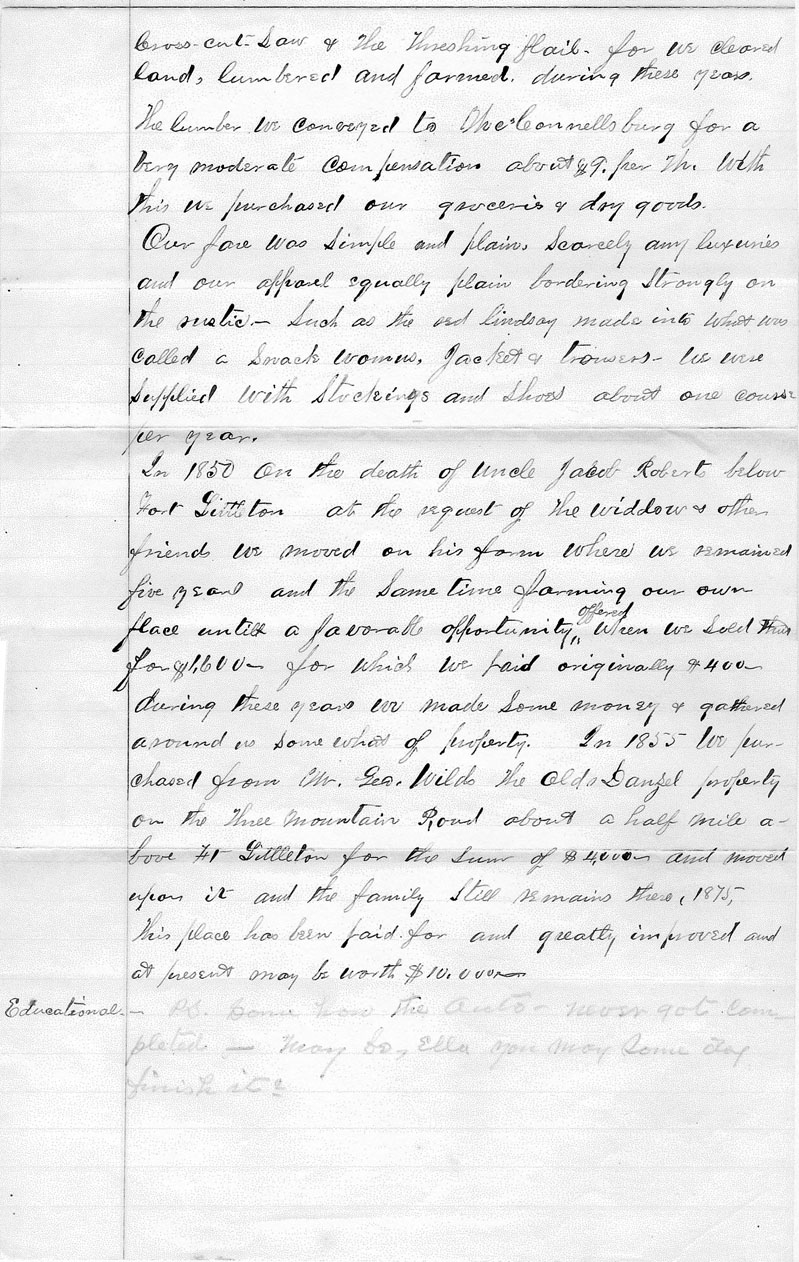 Cross-cut-Saw & the Threshing flail- for we cleared
land, lumbered and farmed. during these years.
The lumber we conveyed to McConnellsburg for a
very moderate compensation about $9. per Th. With
this we purchased our groceries & dry goods.
Our fare was simple and plain, Scarcely any luxuries
and our apparel equally plain bordering strongly on
the rustic- Such as the red lindsay made into what was
called a Smack womus, Jacket & trousers- We were
Supplied with Stockings and Shoes about one course
per year.
In 1850 On the death of Uncle Jacob Roberts below
Fort Littleton at the request of the widdow & other
friends we moved on his farm where we remained
five years and the Same time farming our own
offered
place untill a favorable opportunity, When we Sold
for $1,600- for which we paid originally $400-
during these years we made Some money & gathered
around us Somewhat of property. In 1855 We pur-
chased from Mr. Geo. Wilds the Olds property
on the Three Mountain Road about a half mile a-
bove Ft Littleton for the Sum of $4,000- and moved
upon it and the family Still remains there, 1875,
This place has been paid for and greatly improved and
at present may be worth $10.000-
Educational.- PS. Some how the Auto- never got com-
pleted - May be, Ella you may Some day
finish it?